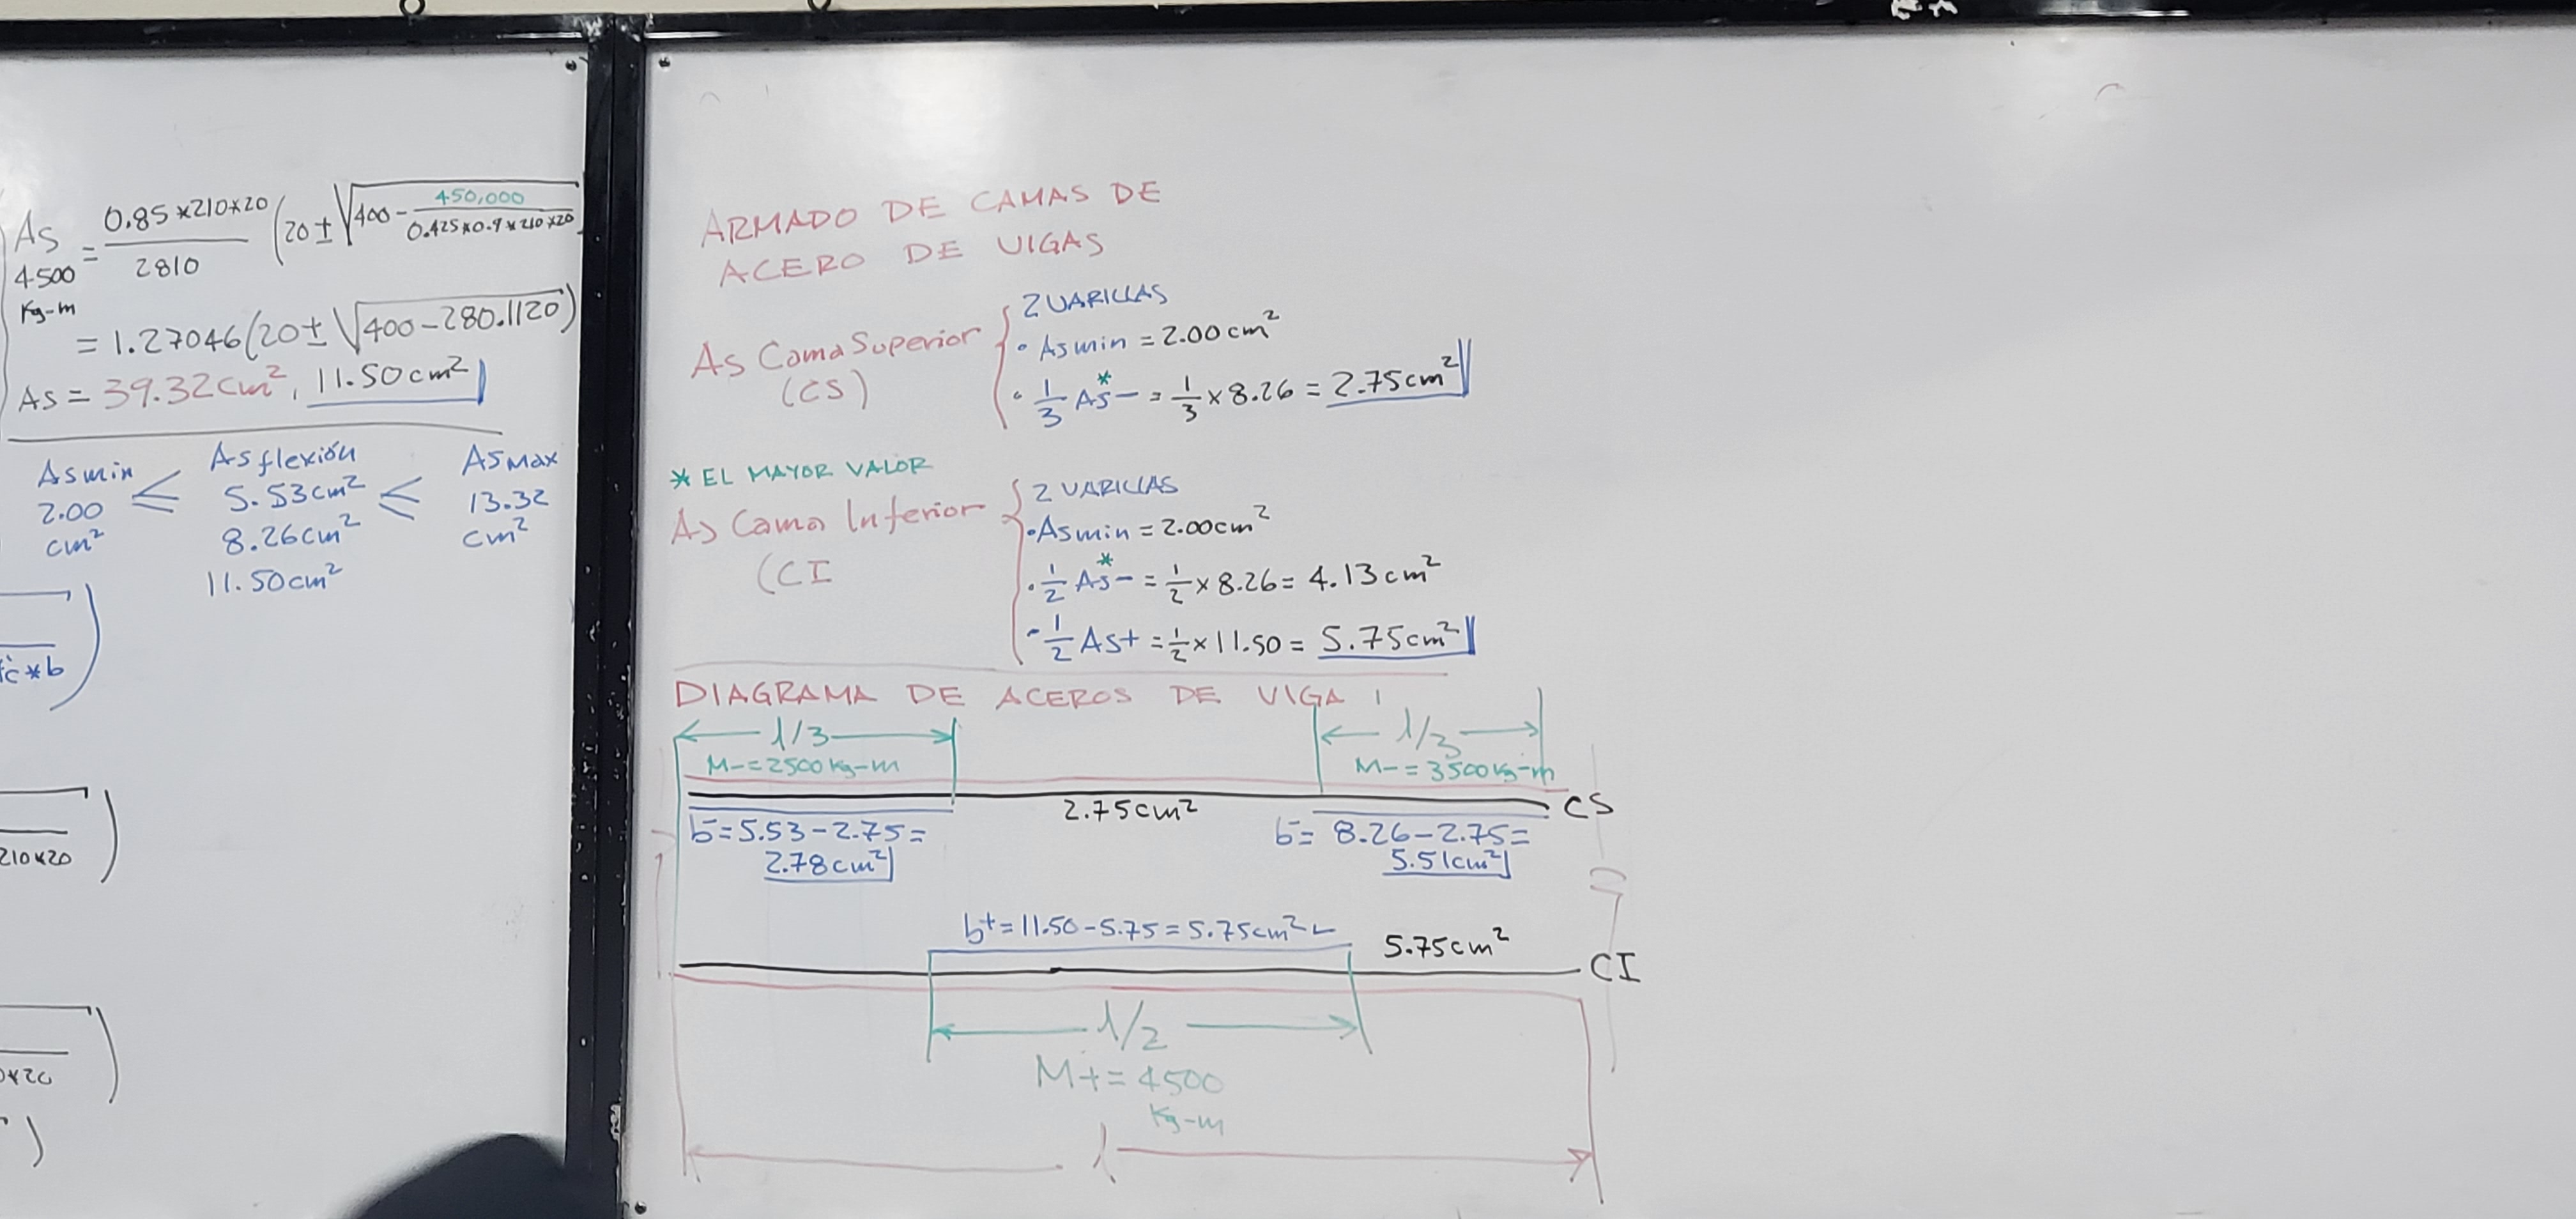 As 4500 Kg-m = 0.85*210*20 / 2810 (20 ± √400 - 450,000 / 0.425*0.9*210*20
= 1.27046(20 ± √400-280.1120)
As = 39.32cm², 11.50cm²
Asmin ≤ As flexión ≤ Asmax
2.00 cm² 5.53cm² 13.32 cm²
8.26cm²
11.50cm²
f'c*b
210*20
ARMADO DE CAMAS DE
ACERO DE VIGAS
As Cama Superior (CS)
2 VARILLAS
• Asmin = 2.00cm²
• 1/3 As*- = 1/3 x 8.26 = 2.75cm²
* EL MAYOR VALOR
As Cama Inferior (CI
2 VARILLAS
• Asmin = 2.00cm²
• 1/2 As*- = 1/2 x 8.26 = 4.13cm²
• 1/2 As+ = 1/2 x 11.50 = 5.75cm²
DIAGRAMA DE ACEROS DE VIGA 1
l/3 l/3
M-=2500Kg-m M-=3500Kg-m
2.75cm² CS
b-=5.53-2.75= b-= 8.26-2.75=
2.78cm² 5.51cm²
b+=11.50-5.75=5.75cm² 5.75cm²
CI
l/2
M+=4500
Kg-m
l